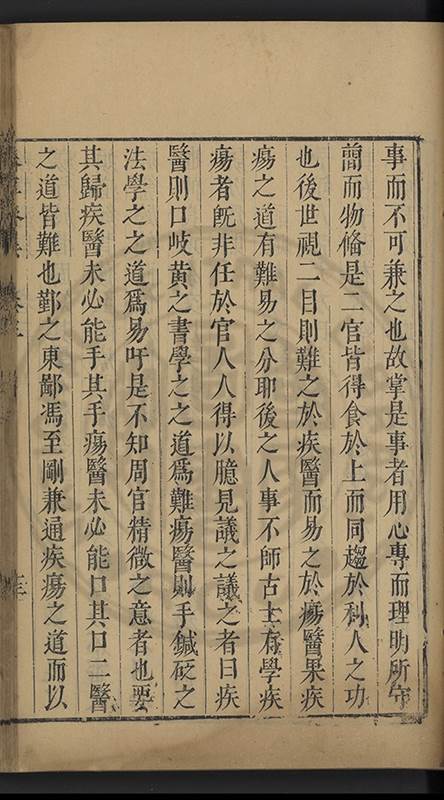 事而不可兼之也故掌是事者用心專而理明所守
蕳而物俻是二官皆得食於上而同趨於利人之功
也後世視二目則難之於疾醫而易之於瘍醫果疾
瘍之道有難易之分耶後之人事不師古士有學疾
瘍者旣非任於官人人得以臆見議之議之者曰疾
醫則口岐黄之書學之之道爲難瘍醫則手鍼砭之
法學之之道爲易吁是不知周官精微之意者也要
其歸疾醫未必能手其手瘍醫未必能口其口二醫
之道皆難也鄞之東鄙馮至剛兼通疾瘍之道而以